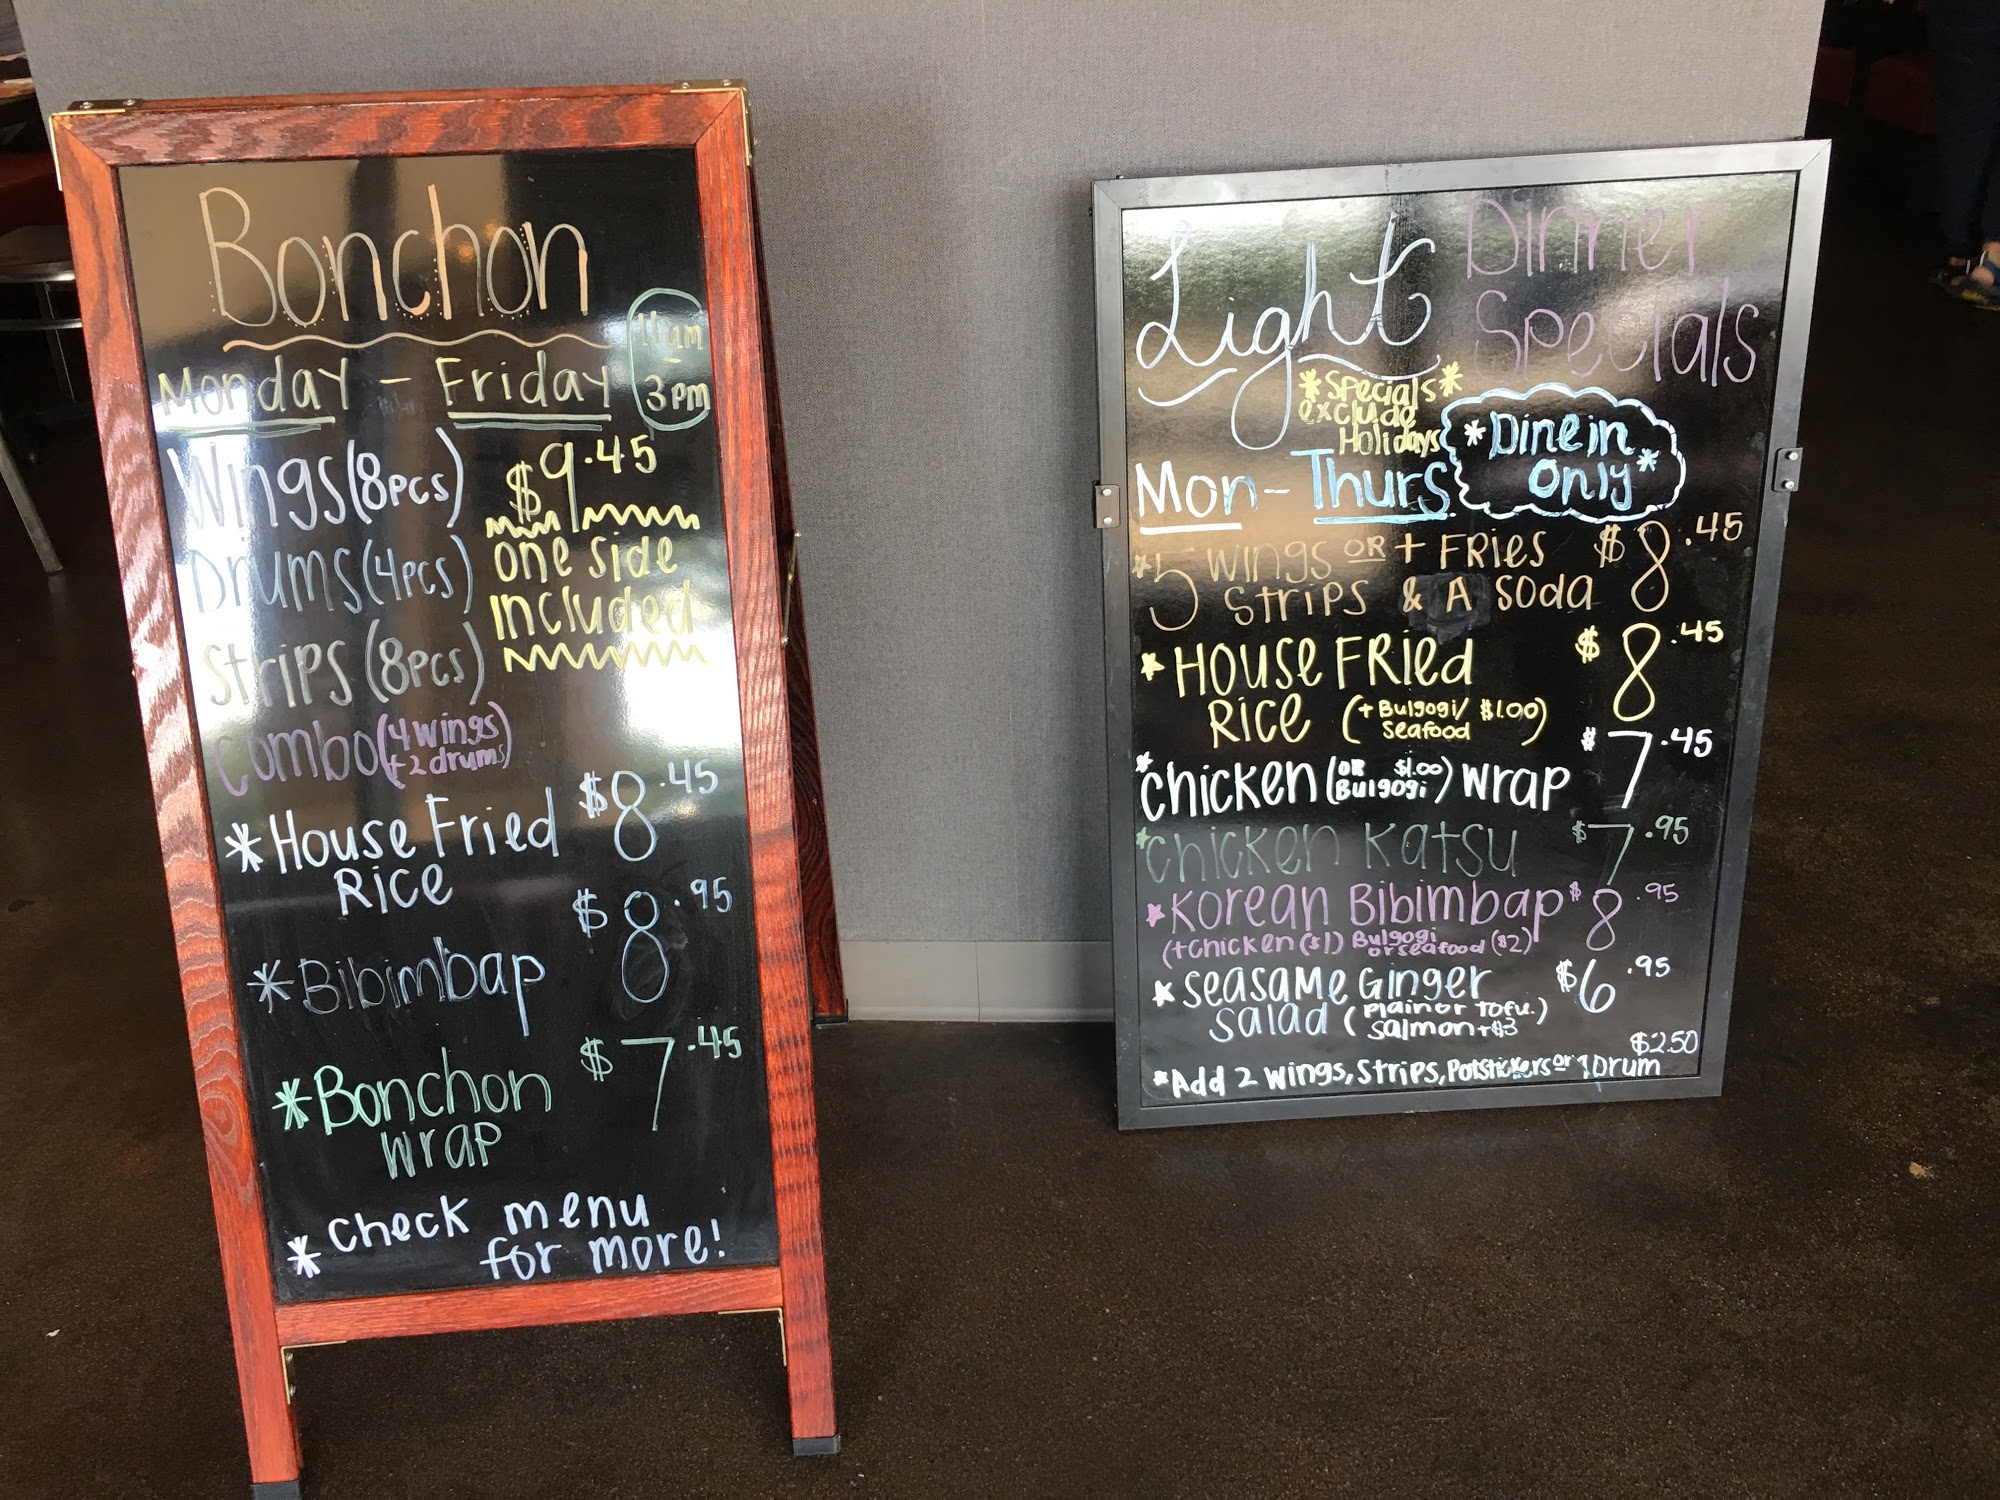 Bonchon
Monday - Friday
11am
-
3pm
Wings (8pcs)
Drums (4pcs)
Strips (8pcs)
Combo (4 wings
+ 2 drums)
$9.45
one side
included
*House Fried
Rice
$8.45
*Bibimbap
$8.95
*Bonchon
wrap
$7.45
* Check menu
for more!
Light
Dinner
Specials
*Specials*
exclude
Holidays
Mon - Thurs
*Dine in
Only*
*5 wings OR + Fries $8.45
Strips & A Soda
*House Fried $8.45
Rice (+ Bulgogi/ $1.00)
Seafood
*Chicken (OR $1.00 Bulgogi) wrap $7.45
*Chicken Katsu $7.95
*Korean Bibimbap $8.95
(+chicken ($1) Bulgogi
or seafood ($2)
*Seasame Ginger $6.95
Salad (Plain or Tofu.)
Salmon +$3
$2.50
*Add 2 wings, Strips, Potstickers or 1 Drum